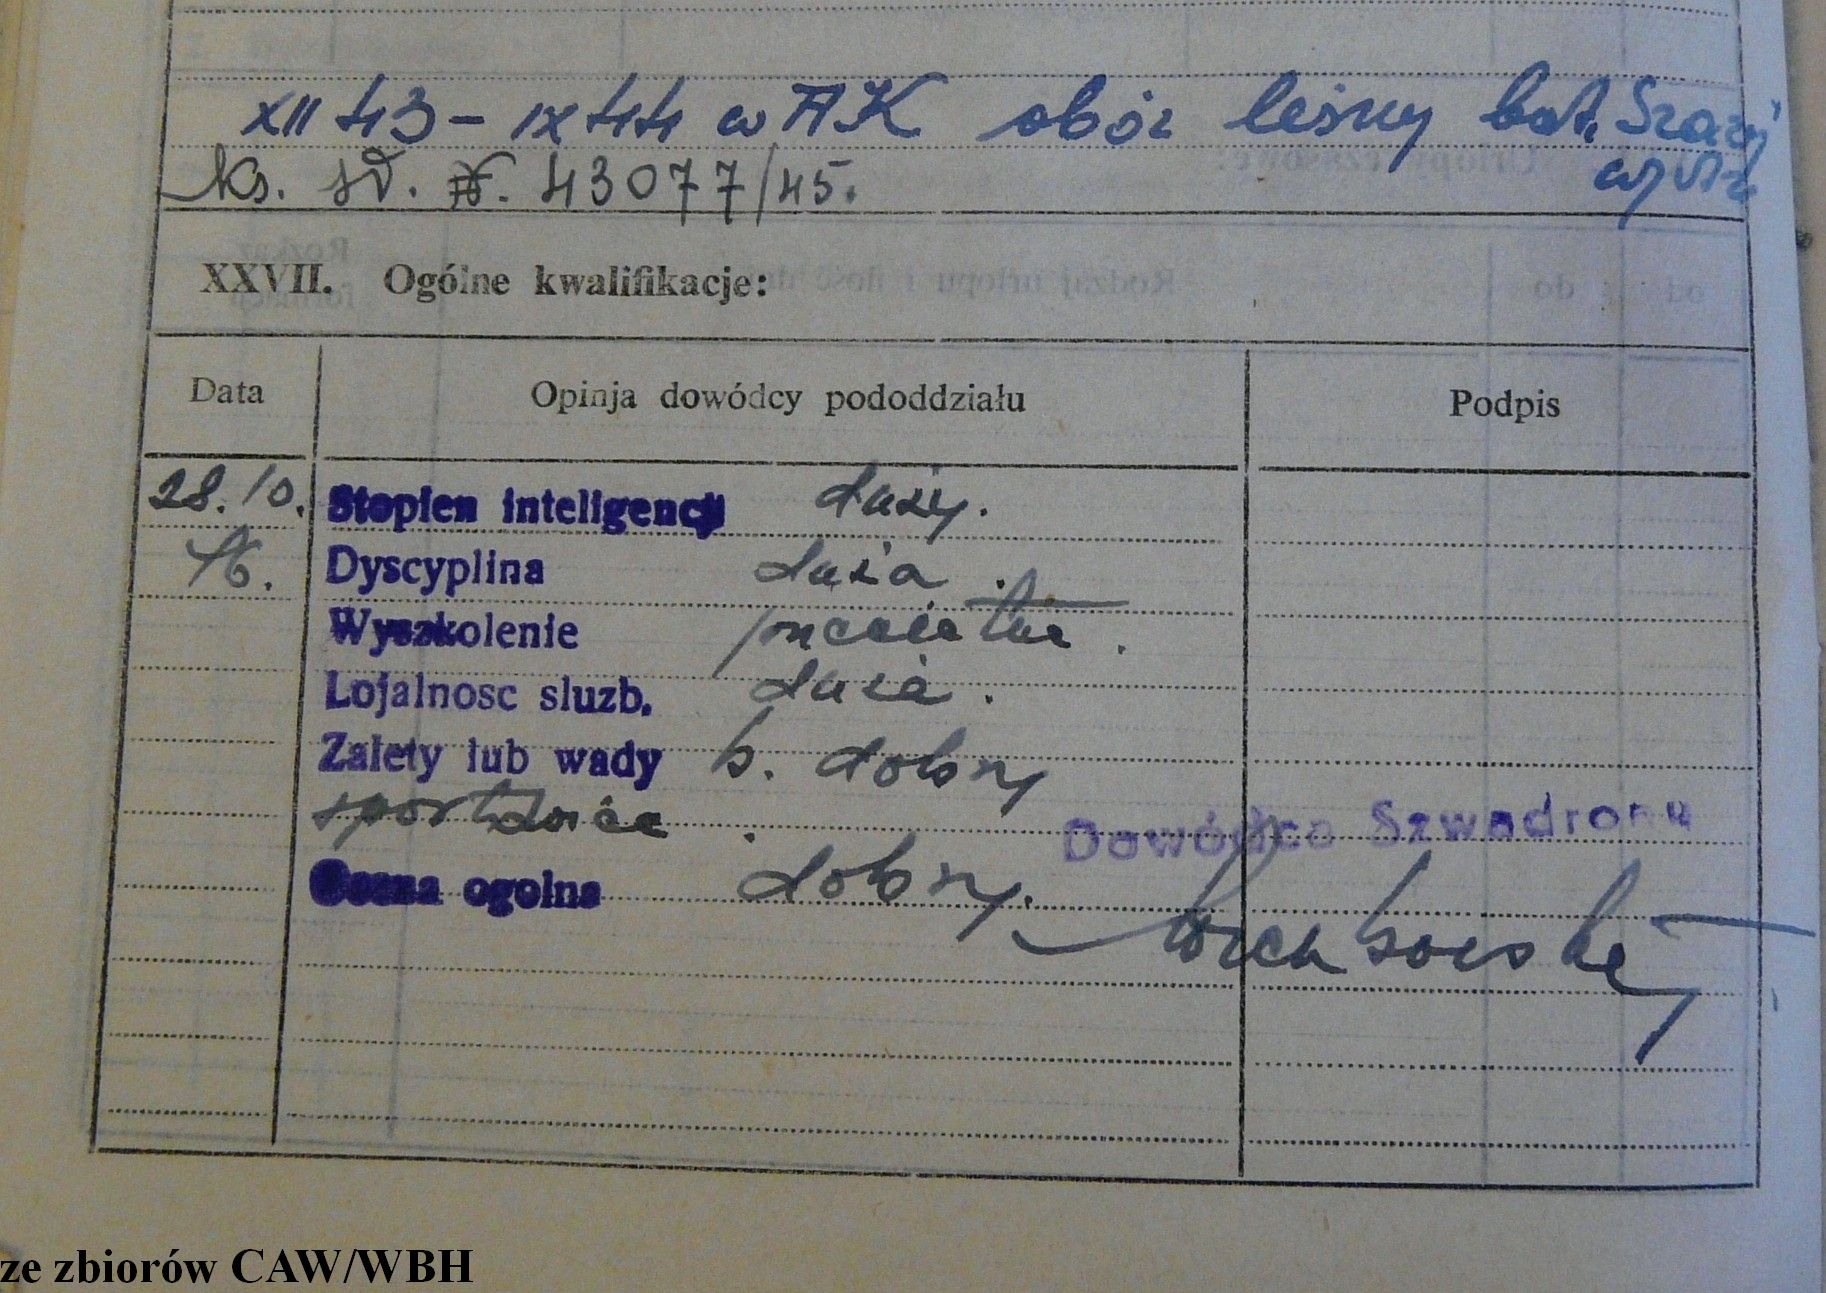 XII 43 – IX 44 w AK obóz leśny bat. Szarej
Ks. 43077/45.
XXVII. Ogólne kwalifikacje:
Data Opinja dowódcy pododdziału Podpis
28.10. Stopien inteligencji duży.
46. Dyscyplina duża.
Wyszkolenie
Lojalnosc sluzb. duża.
Zalety lub wady b. dobry
sportowiec.
Dowódca Szwadronu
Ocena ogolna dobry.
ze zbiorów CAW/WBH